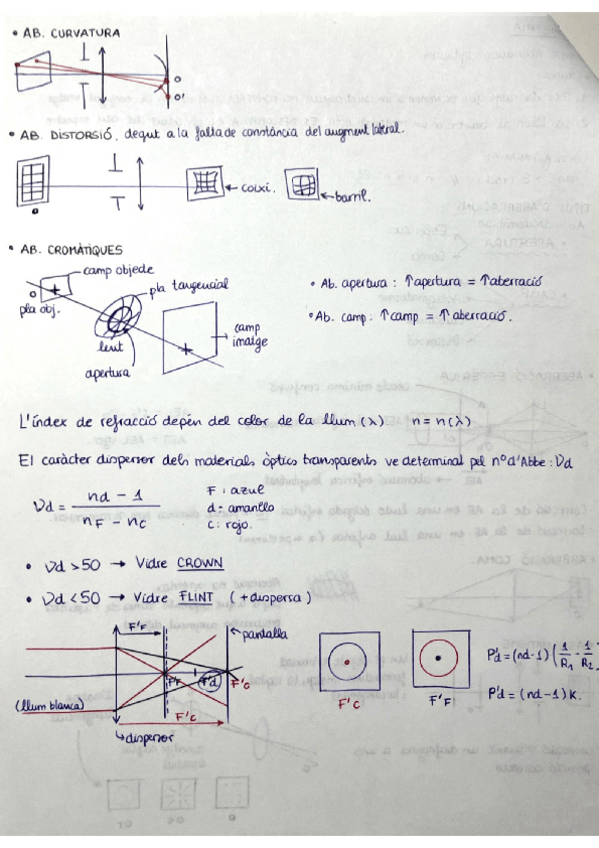 • AB. CURVATURA
O
O'
• AB. DISTORSIÓ, degut a la falta de constància del augment lateral.
← coixí.
←barril.
• AB. CROMÀTIQUES
camp objecte
pla tangencial
O
pla obj.
lent
apertura
camp
imatge
• Ab. apertura : ↑apertura = ↑aberració
• Ab. camp : ↑camp = ↑ aberració.
L'índex de refracció depèn del color de la llum (λ) n = n(λ)
El caràcter dispersor dels materials òptics transparents ve determinat pel nº d'Abbe : νd
νd = (nd - 1) / (nF - nc)
F : azul
d : amarillo
c : rojo.
• νd >50 → Vidre CROWN
• νd <50 → Vidre FLINT (+ dispersa)
F'F
pantalla
F'F
F'd
F'c
F'c
(llum blanca)
dispersor
F'c
F'F
P'd = (nd-1) (1/R1 - 1/R2
P'd = (nd-1) K.